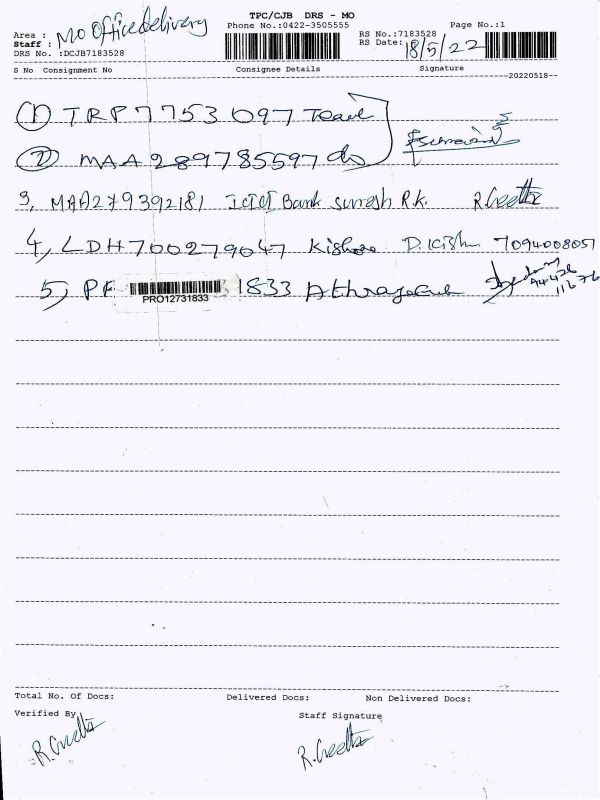 TPC/CJB DRS - MO
Phone No.:0422-3505555
Page No.:1
Area : MO Office delivery
Staff :
DRS No. :DCJB7183528
RS No.:7183528
RS Date: 18/5/22
S No Consignment No Consignee Details Signature
20220518
1) TRP 7753097
2) MAA 289785597 do
3, MAA279392181 ICICI Bank Suresh R.K. R.Geetha
4, LDH700279047 Kishore D.Kishore 7094008051
5) PR 1833
PRO12731833
Total No. Of Docs: Delivered Docs: Non Delivered Docs:
Verified By Staff Signature
R.Geetha R.Geetha